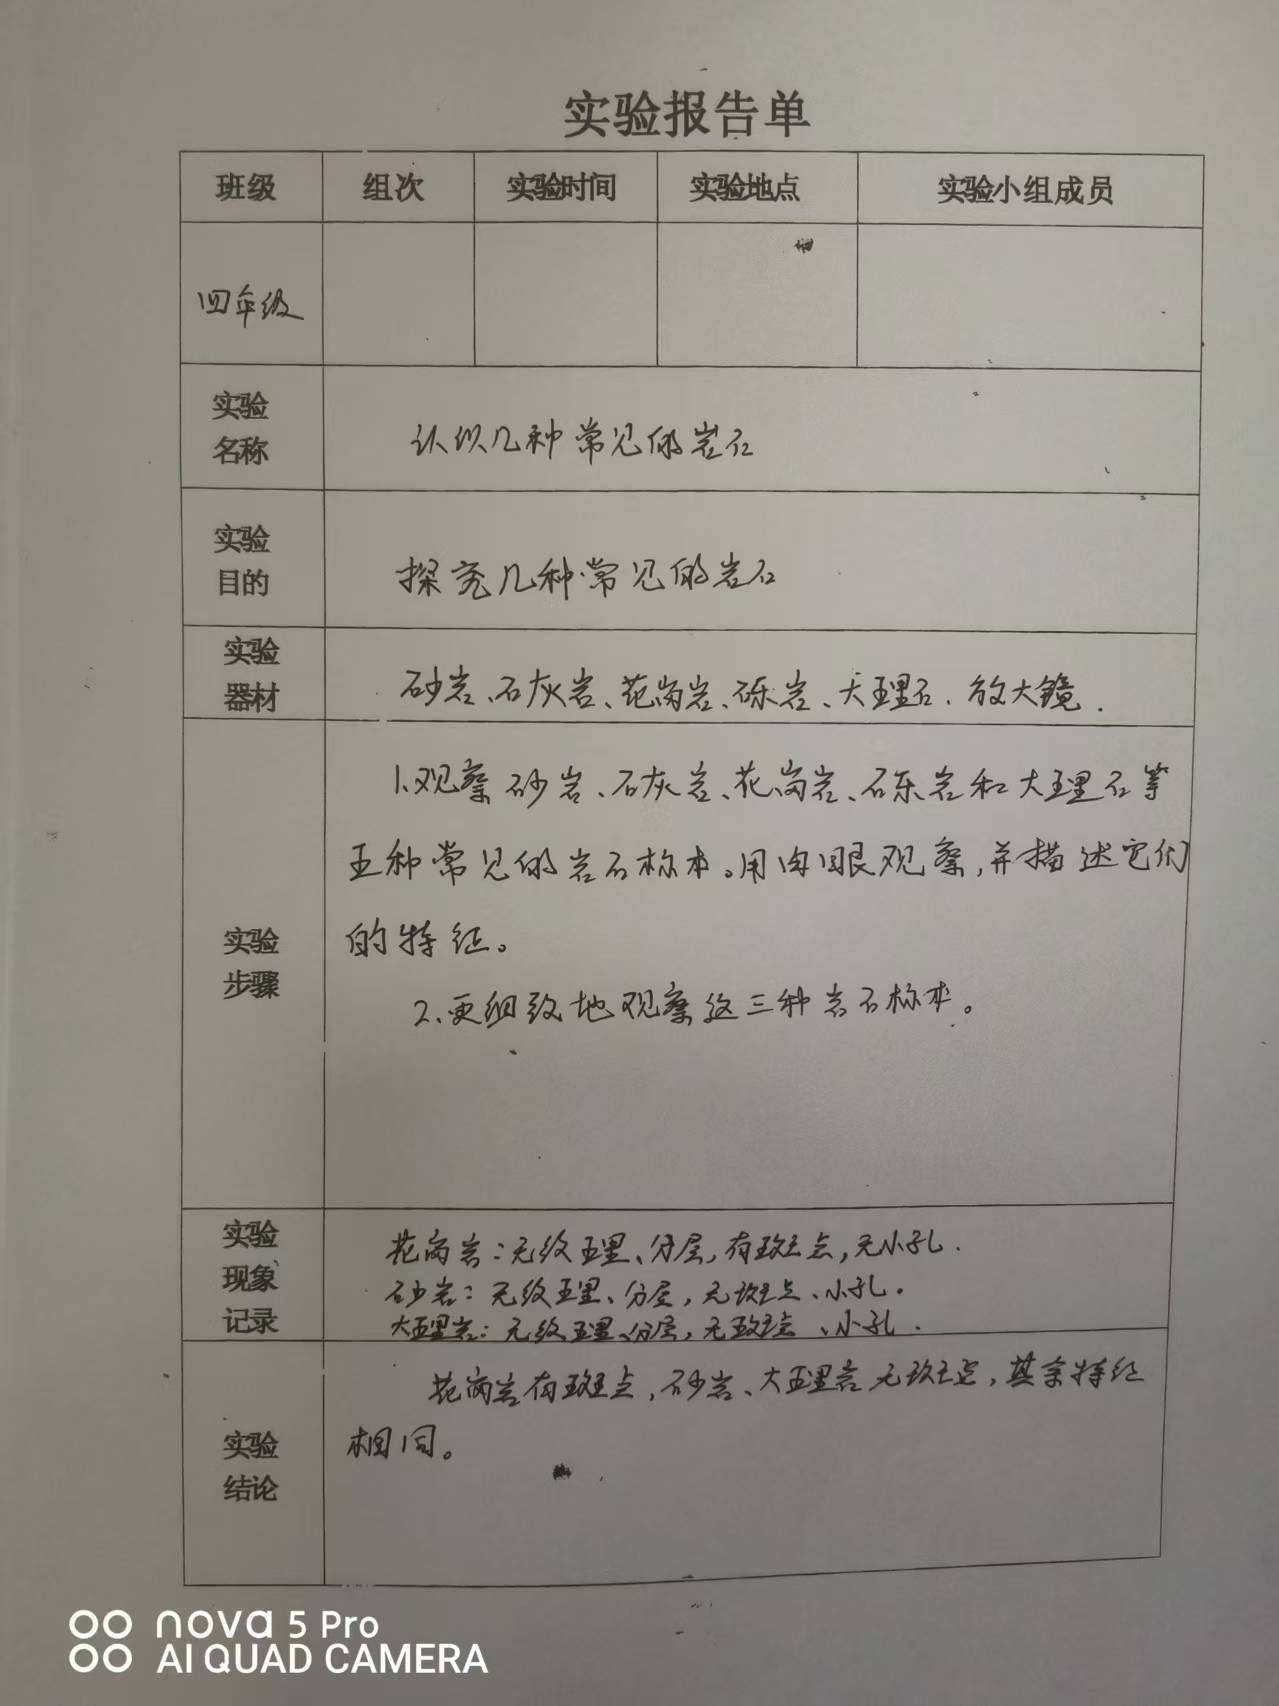 实验报告单
班级 组次 实验时间 实验地点 实验小组成员
四年级
实验
名称
认识几种常见的岩石
实验
目的
探究几种常见的岩石
实验
器材
砂岩、石灰岩、花岗岩、砾岩、大理石、放大镜.
实验
步骤
1、观察砂岩、石灰岩、花岗岩、砾岩和大理石等
五种常见的岩石标本。用肉眼观察,并描述它们
的特征。
2、更细致地观察这三种岩石标本。
实验
现象
记录
花岗岩:无纹理、分层,有斑点,无小孔.
砂岩:无纹理、分层,无斑点、小孔。
大理岩:无纹理、分层,无斑点、小孔.
实验
结论
花岗岩有斑点,砂岩、大理岩无斑点,其余特征
相同。
nova 5 Pro
AI QUAD CAMERA